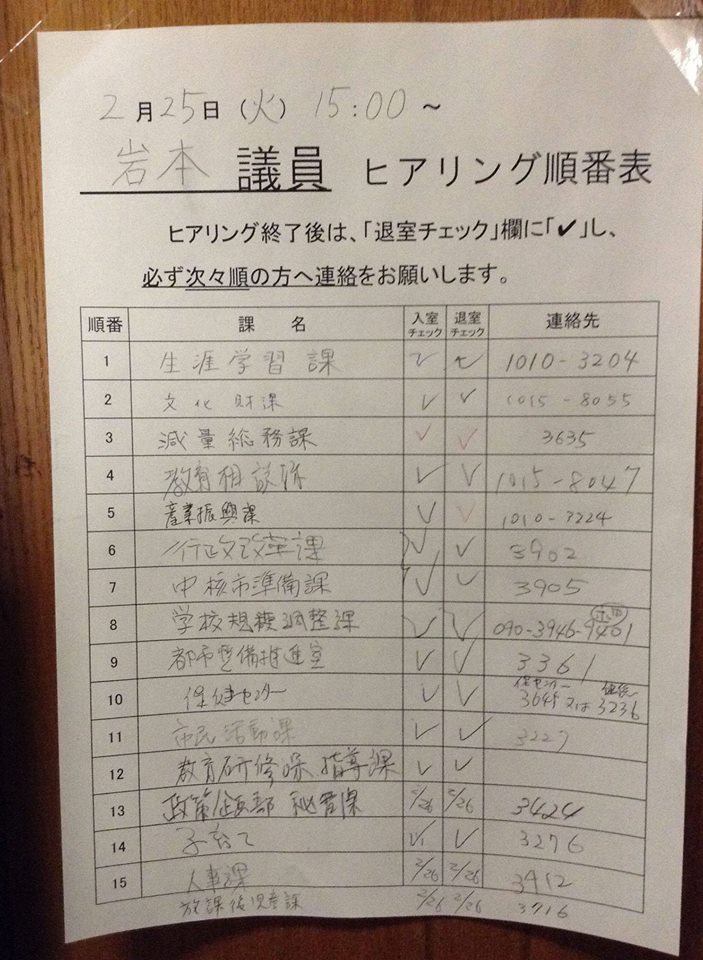 2月25日（火）15:00～
岩本 議員 ヒアリング順番表
ヒアリング終了後は、「退室チェック」欄に「✔」し、
必ず次々順の方へ連絡をお願いします。
順番 課 名 入室チェック 退室チェック 連絡先
1 生涯学習課 ✓ ✓ 1010-3204
2 文化財課 ✓ ✓ 1015-8055
3 減量総務課 ✓ ✓ 3635
4 教育相談 ✓ ✓ 1015-8047
5 産業振興課 ✓ ✓ 1010-3224
6 行政改革課 ✓ ✓ 3902
7 中核市準備課 ✓ ✓ 3905
8 学校規模調整課 ✓ ✓ 090-3946-9461
9 都市整備推進室 ✓ ✓ 3361
10 保健センター ✓ ✓ 保センター 3645 又は 3236
11 市民活動課 ✓ ✓ 3227
12 教育研修課 指導課 ✓ ✓
13 政策企画部 秘書課 2/26 2/26 3424
14 子育て ✓ ✓ 3276
15 人事課 2/26 2/26 3912
放課後児童課 2/26 2/26 3716